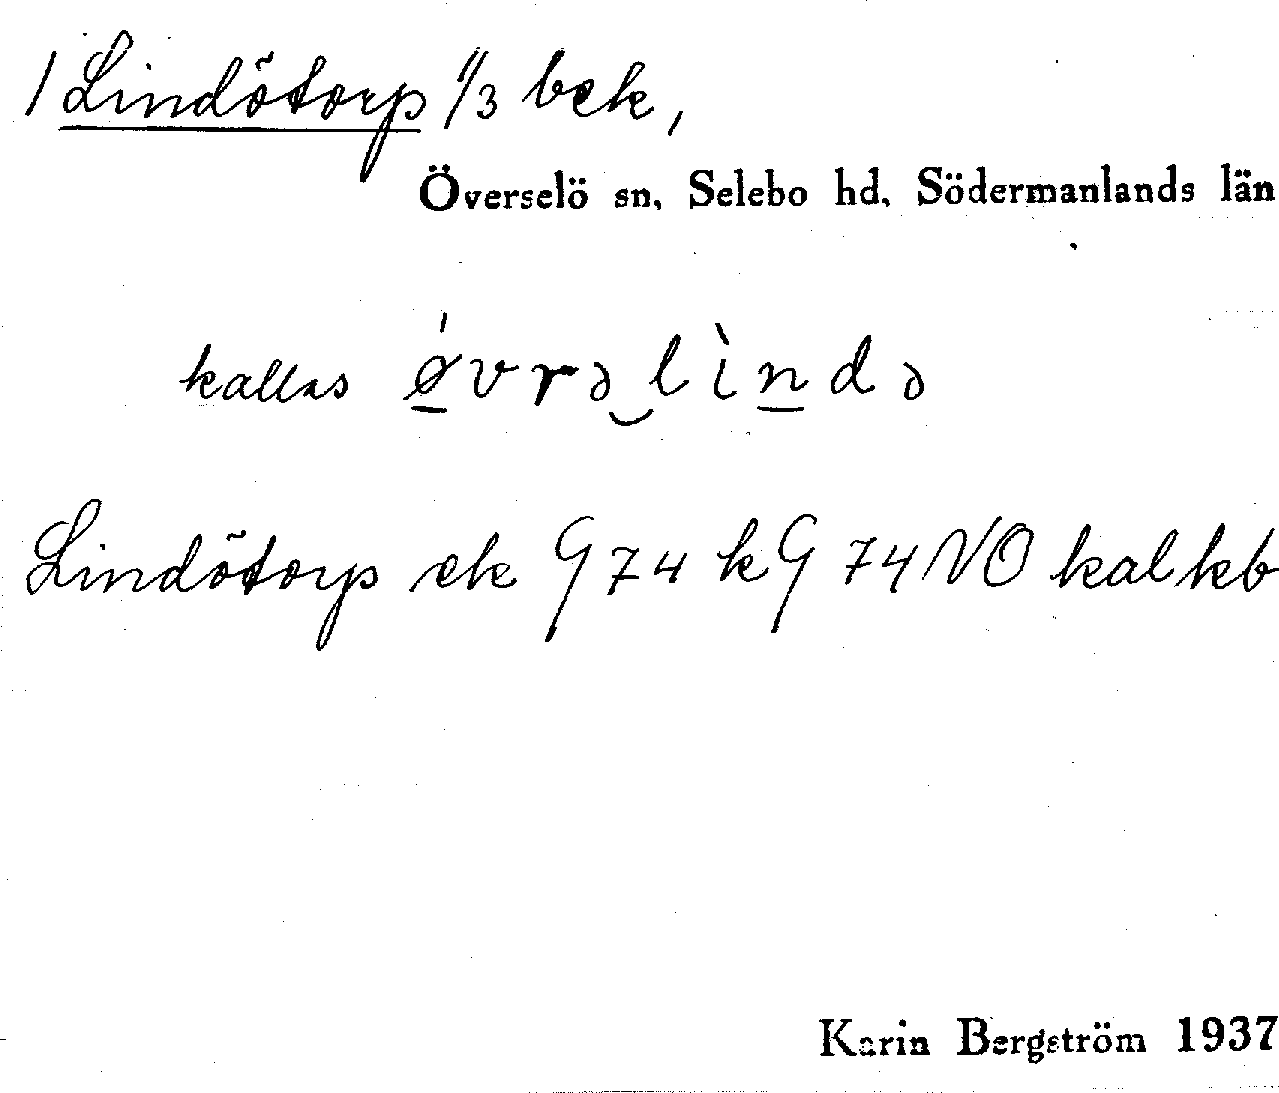 / Lindötorp 1/3 bek,
Överselö sn, Selebo hd, Södermanlands län
kallas ǿ̱vrə‿lìṉdə
Lindötorp ek G 74 k G 74 NO kalkb
Karin Bergström 1937